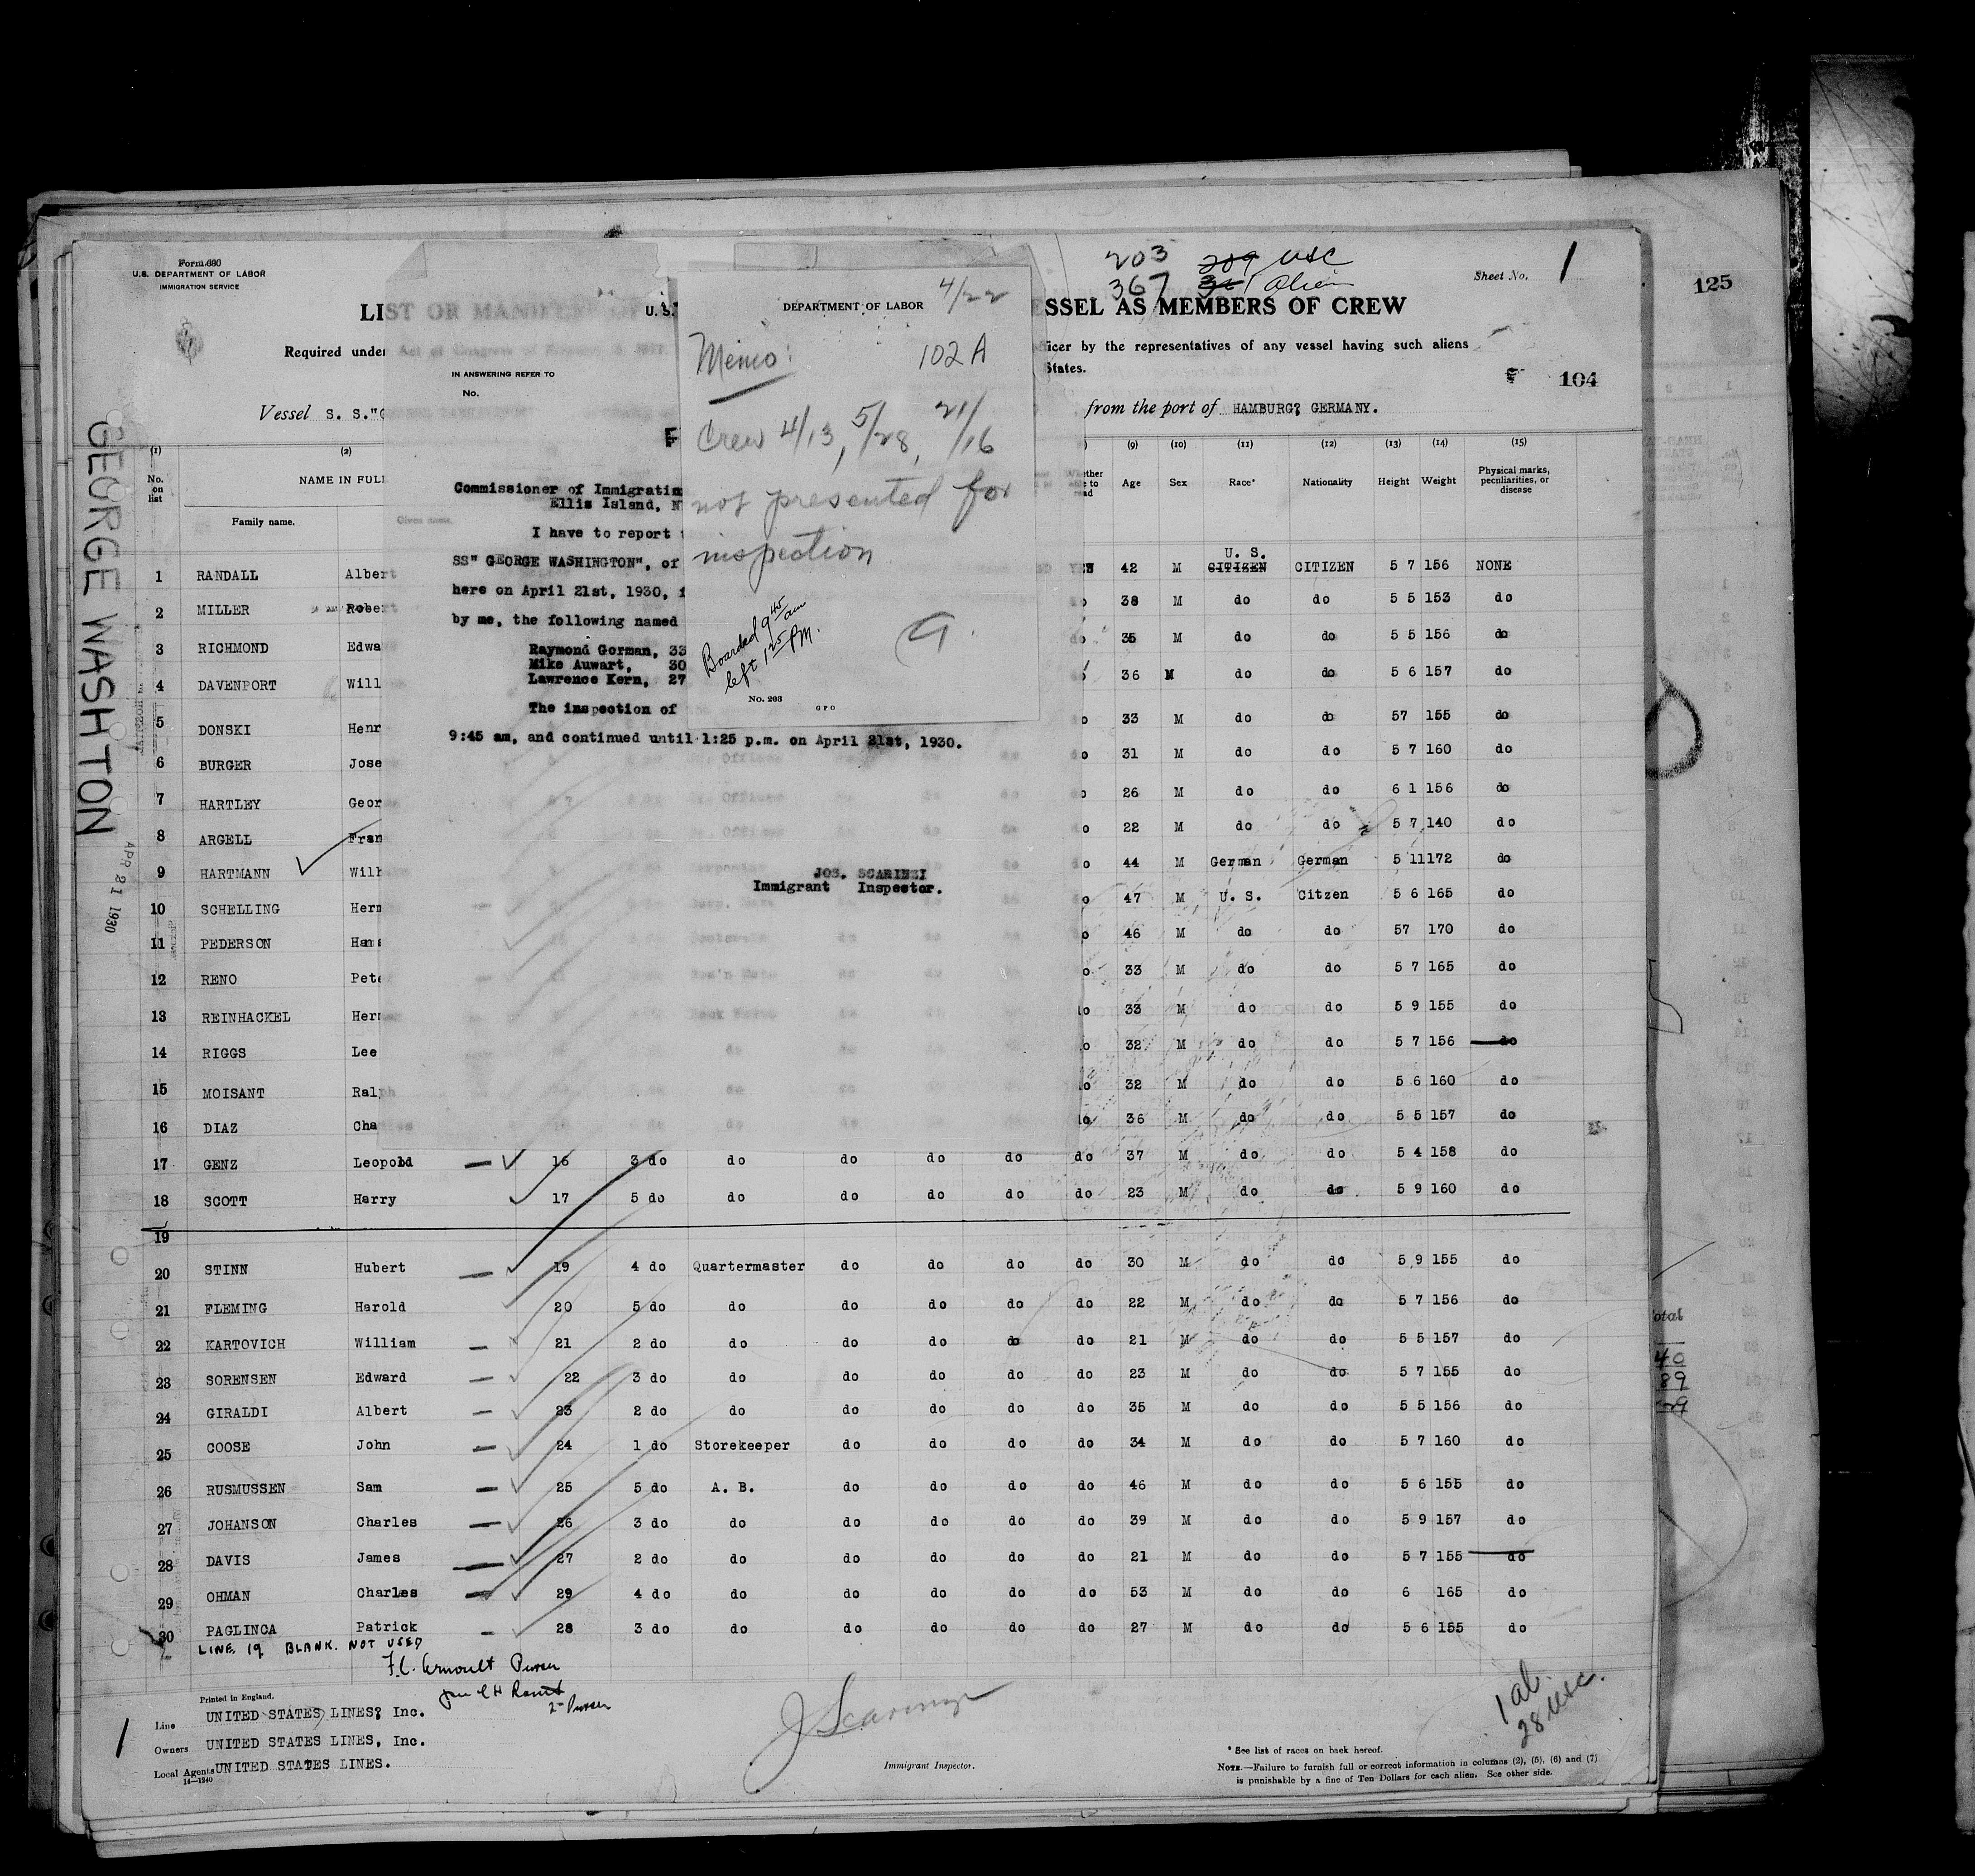 Form 680
U.S. DEPARTMENT OF LABOR
IMMIGRATION SERVICE
203 209 USC
367 Alien
Sheet No. 1
125
LIST OR MANIFEST OF
ESSEL AS MEMBERS OF CREW
Required under Act of Congress of
ficer by the representatives of any vessel having such aliens
States.
104
Vessel S. S."G
from the port of HAMBURG? GERMANY.
GEORGE WASHTON
APR 21 1930
U.S.
IN ANSWERING REFER TO
No.
Commissioner of Immigration
Ellis Island, N
I have to report
SS" GEORGE WASHINGTON", of
here on April 21st, 1930, i
by me, the following named
Raymond Gorman, 33
Mike Auwart, 30
Lawrence Kern, 27
The inspection of
9:45 am, and continued until 1:25 p.m. on April 21st, 1930.
JOS. SCARINZI
Immigrant Inspector.
4/22
DEPARTMENT OF LABOR
Memo: 102 A
Crew 4/13, 5/28, 21/16
not presented for
inspection
Boarded 9 45 am
left 1 25 PM.
No. 203
GPO
(1) (2) (9) (10) (11) (12) (13) (14) (15)
No. on list NAME IN FULL Age Sex Race* Nationality Height Weight Physical marks, peculiarities, or disease
Family name. Given name.
1 RANDALL Albert 42 M U. S. CITIZEN CITIZEN 5 7 156 NONE
2 MILLER Rober 38 M do do 5 5 153 do
3 RICHMOND Edwa 35 M do do 5 5 156 do
4 DAVENPORT Will 36 M do do 5 6 157 do
5 DONSKI Henr 33 M do do 57 155 do
6 BURGER Jose 31 M do do 5 7 160 do
7 HARTLEY Geor 26 M do do 6 1 156 do
8 ARGELL Fran 22 M do do 5 7 140 do
9 HARTMANN Wilh 44 M German German 5 11 172 do
10 SCHELLING Herm 47 M U. S. Citzen 5 6 165 do
11 PEDERSON Hans 46 M do do 57 170 do
12 RENO Pete 33 M do do 5 7 165 do
13 REINHACKEL Her 33 M do do 5 9 155 do
14 RIGGS Lee 32 M do do 5 7 156 do
15 MOISANT Ralph 32 M do do 5 6 160 do
16 DIAZ Cha 36 M do do 5 5 157 do
17 GENZ Leopold 16 3 do do do do do do 37 M do do 5 4 158 do
18 SCOTT Harry 17 5 do do do do do do 23 M do do 5 9 160 do
19
20 STINN Hubert 19 4 do Quartermaster do do do do 30 M do do 5 9 155 do
21 FLEMING Harold 20 5 do do do do do do 22 M do do 5 7 156 do
22 KARTOVICH William 21 2 do do do do do do 21 M do do 5 5 157 do
23 SORENSEN Edward 22 3 do do do do do do 23 M do do 5 7 155 do
24 GIRALDI Albert 23 2 do do do do do do 35 M do do 5 5 156 do
25 COOSE John 24 1 do Storekeeper do do do do 34 M do do 5 7 160 do
26 RUSMUSSEN Sam 25 5 do A. B. do do do do 46 M do do 5 6 155 do
27 JOHANSON Charles 26 3 do do do do do do 39 M do do 5 9 157 do
28 DAVIS James 27 2 do do do do do do 21 M do do 5 7 155 do
29 OHMAN Charles 29 4 do do do do do do 53 M do do 6 165 do
30 PAGLINCA Patrick 28 3 do do do do do do 27 M do do 5 6 155 do
LINE 19 BLANK. NOT USED
Purser
2nd Purser
Printed in England.
1
Line UNITED STATES LINES? Inc.
Owners UNITED STATES LINES, Inc.
Local Agents UNITED STATES LINES.
14—1240
J Scarinzi
Immigrant Inspector.
1 al.
28 USC.
* See list of races on back hereof.
NOTE.—Failure to furnish full or correct information in columns (2), (5), (6) and (7)
is punishable by a fine of Ten Dollars for each alien. See other side.
otal
40
89